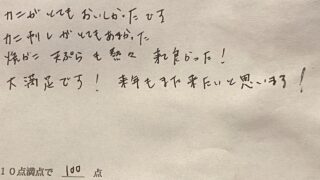 カニがとてもおいしかったです
カニ刺しがとてもあまかった
焼ガニ 天ぷらも熱々 良かった!
大満足です! 来年もまた来たいと思います!
10点満点で 100 点